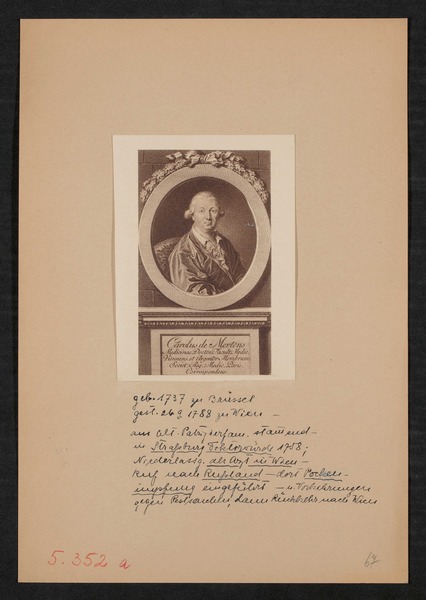 Carolus de Mertens
Medicinae Doctor Facult. Medic.
Viennens. et Argentor. Membrum
Societ. Reg. Medic. Paris.
Correspondens.
geb. 1737 zu Brüssel
gest. 1788 zu Wien –
aus alt. Patrizierfam. stammend –
in Straßburg Doktorwürde 1758,
Niederlassg. als Arzt in Wien –
Ruf nach Rußland – dort Pocken-
impfung eingeführt – u. Vorkehrungen
gegen dann Rückkehr nach Wien
5.352 a
67